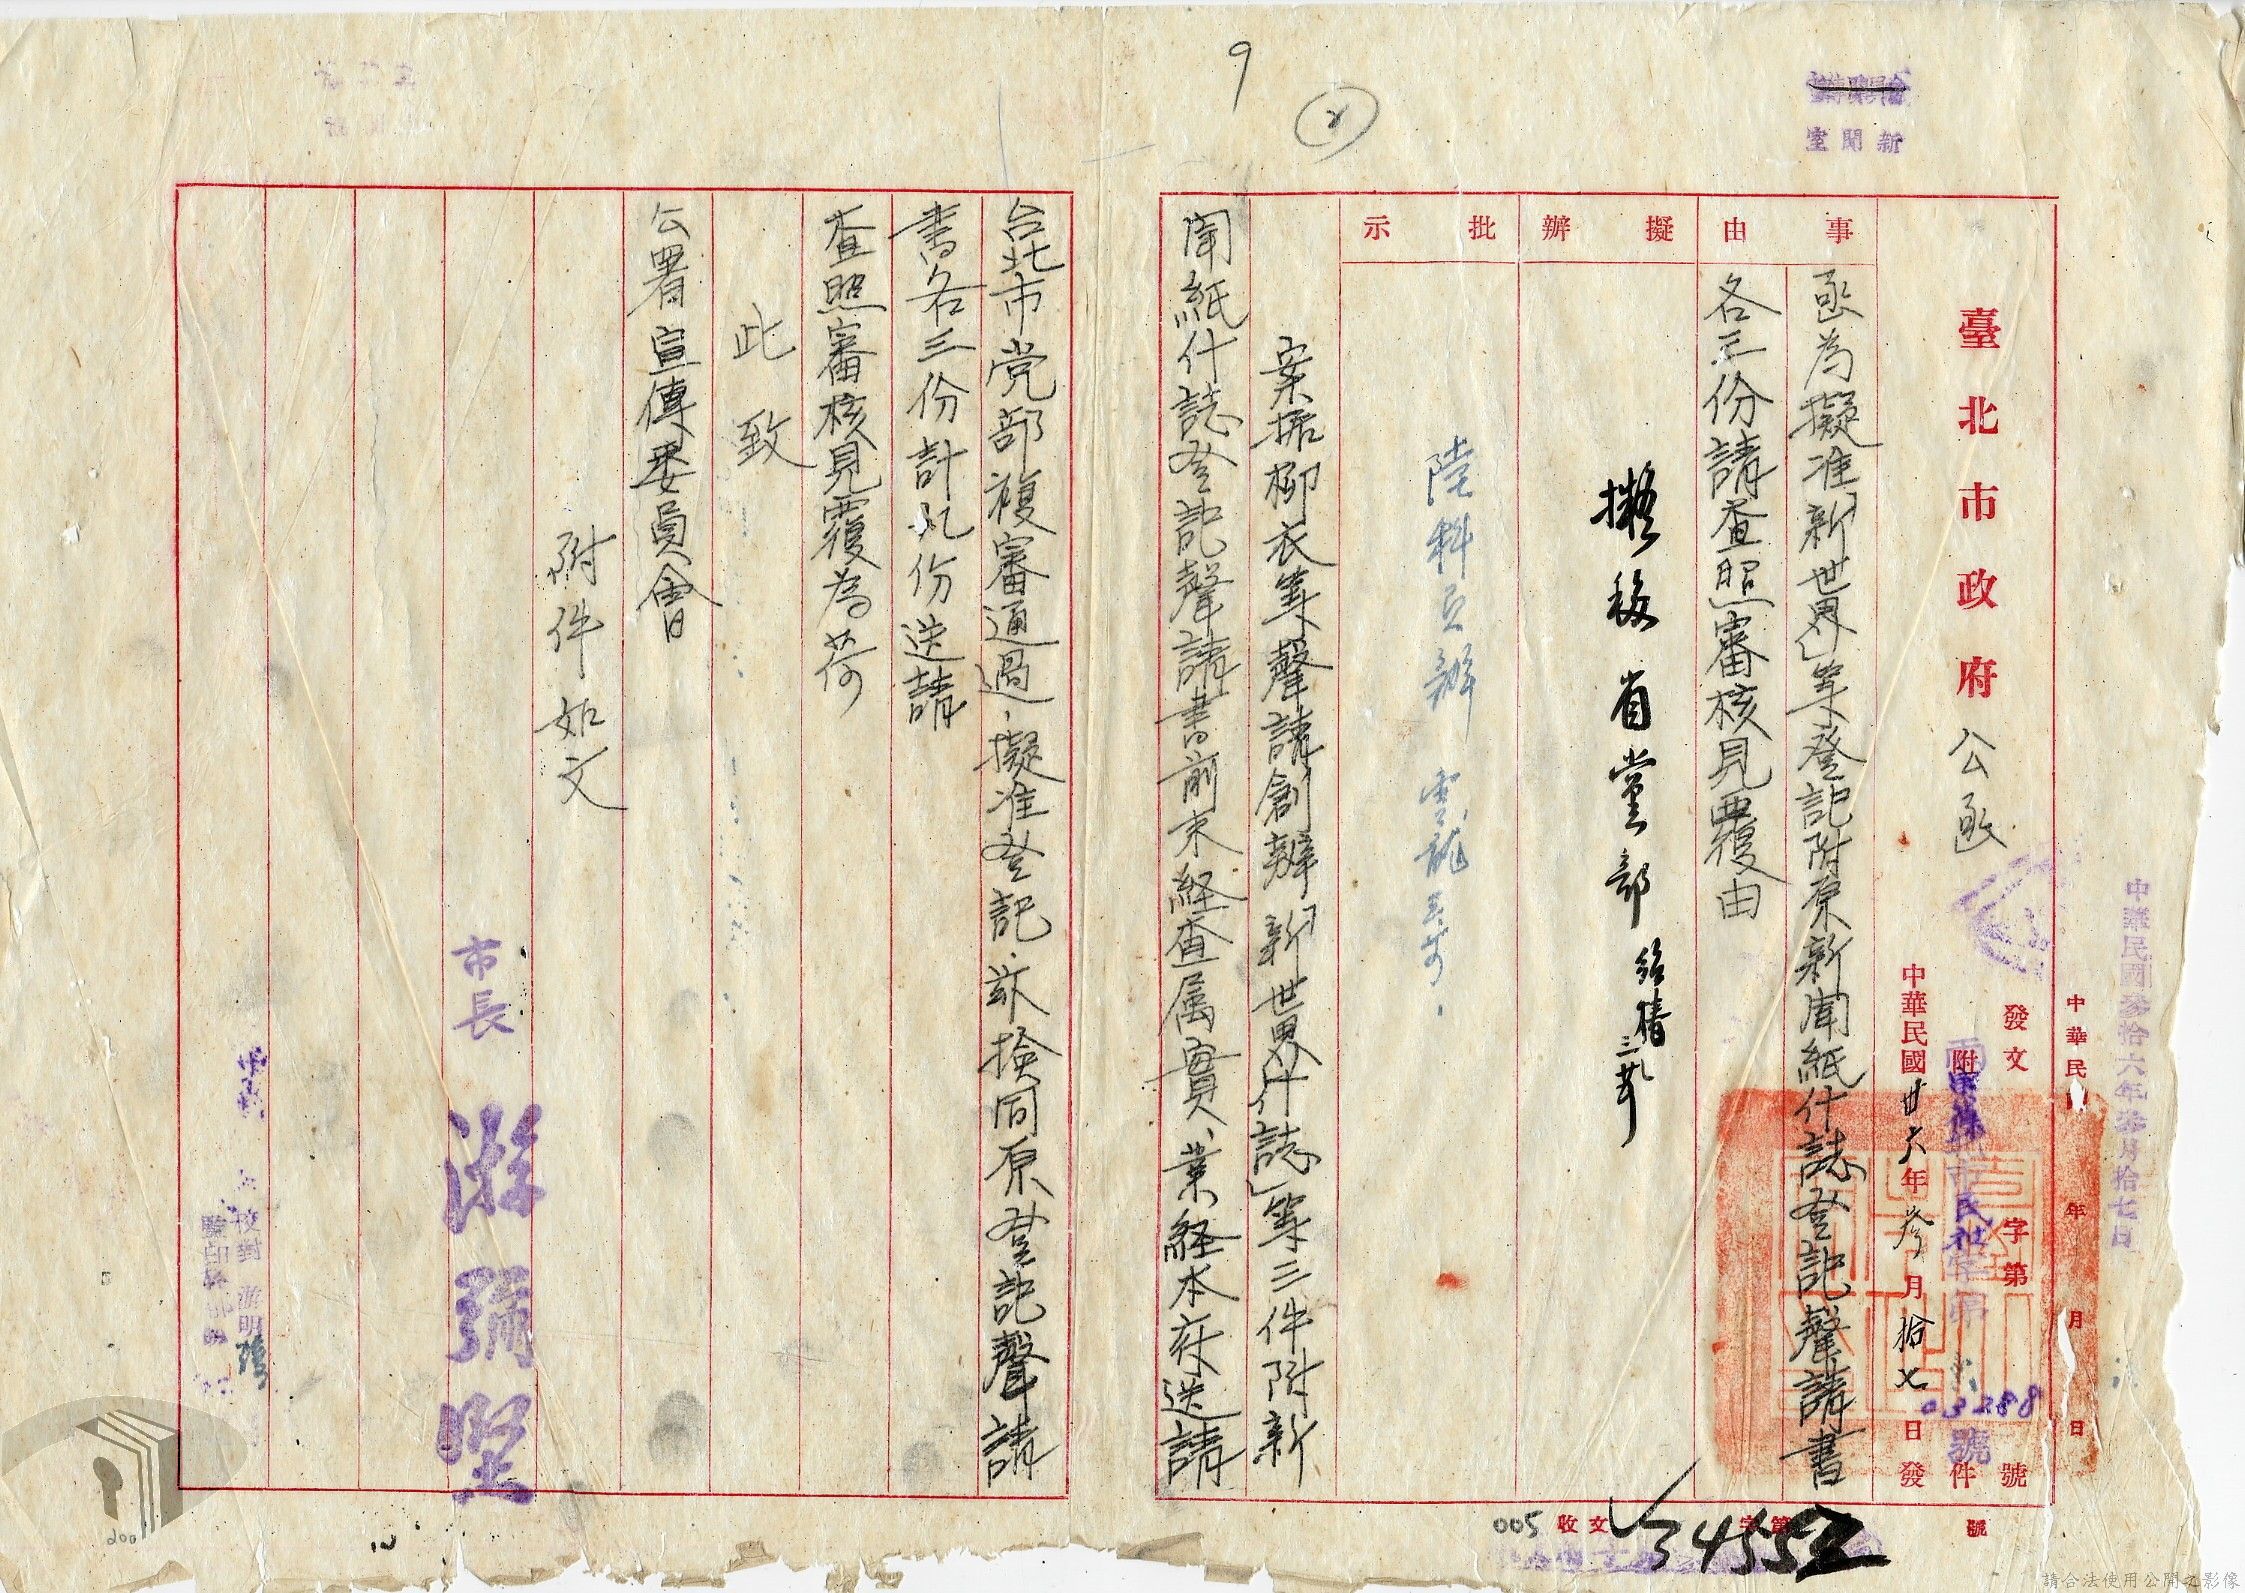 9
2
新聞室
臺北市政府公函
中華民國參拾六年叁月拾七日
中華民 年 月 日
發文 字第 號
附 件
03288 號
中華民國卅六年叁月拾七日發
事由
函為擬准「新世界」等登記附原新聞紙什誌登記聲請書
各三份請查照審核見覆由
擬辦
擬移省黨部
批示
案据柳衣等聲請創辦「新世界什誌」等三件附新
聞紙什誌登記聲請書前來経查属實、業経本府送請
台北市党部複審通過,擬准登記.玆撿同原登記聲請
書各三份計九份送請
查照審核見覆為荷
此致
公署宣傳委員會
附件如文
市長 游彌堅
校對 游明
監印
收文 字第 號
34552
005
200
請合法使用公開之影像